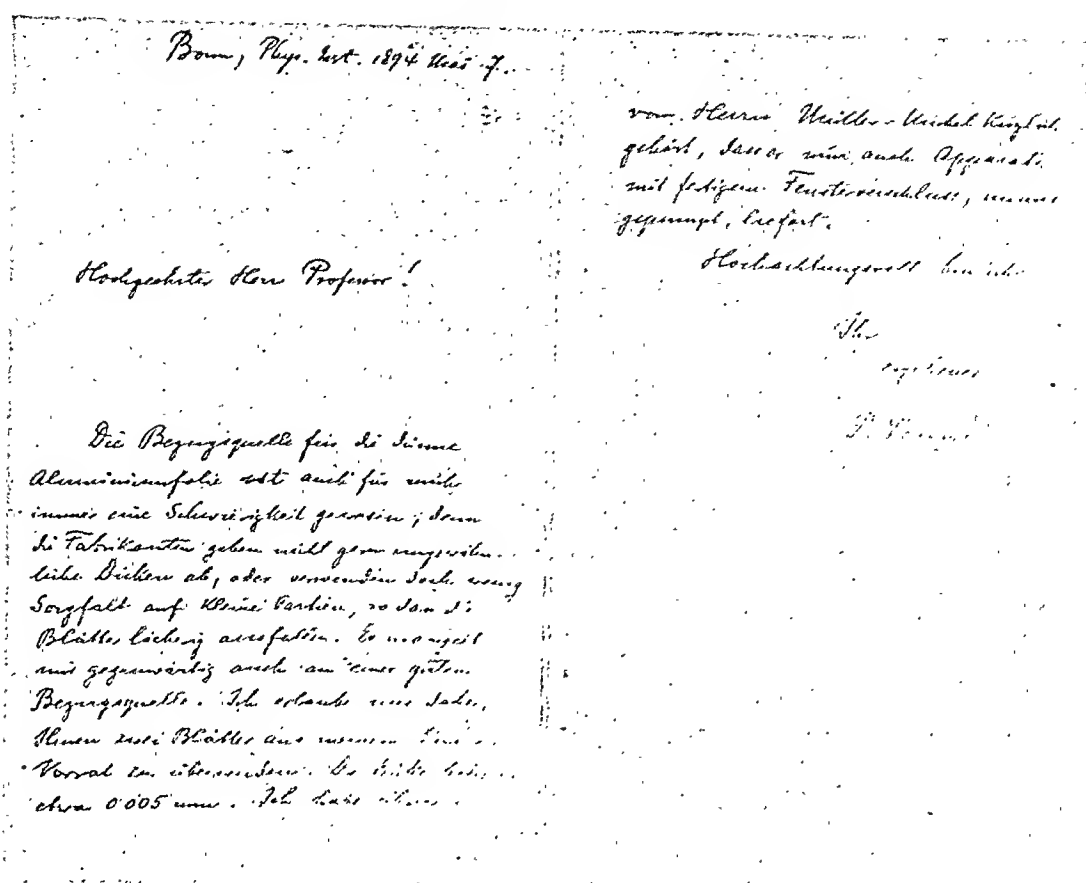 Bonn, Phys. Inst. 1894 Mai 7.
Hochgeehrter Herr Professor!
Die Bezugsquelle für die dünne
Aluminiumfolie ist auch für mich
immer eine Schwierigkeit gewesen; denn
die Fabrikanten geben nicht gern ungewöhn-
liche Dicken ab, oder verwenden doch wenig
Sorgfalt auf kleine Partien, so dass die
Blätter löcherig ausfallen. Es mangelt
mir gegenwärtig auch an einer guten
Bezugsquelle. Ich erlaube mir daher,
Ihnen zwei Blätter aus meinem
Vorrat zu übersenden. Die Dicke
etwa 0.005 mm. Ich habe
von Herrn Müller-Unkel
gehört, dass er nun auch Apparate
mit fertigem Fensterverschluss,
liefert.
Hochachtungsvoll bin ich
Ihr
ergebener
P. Lenard